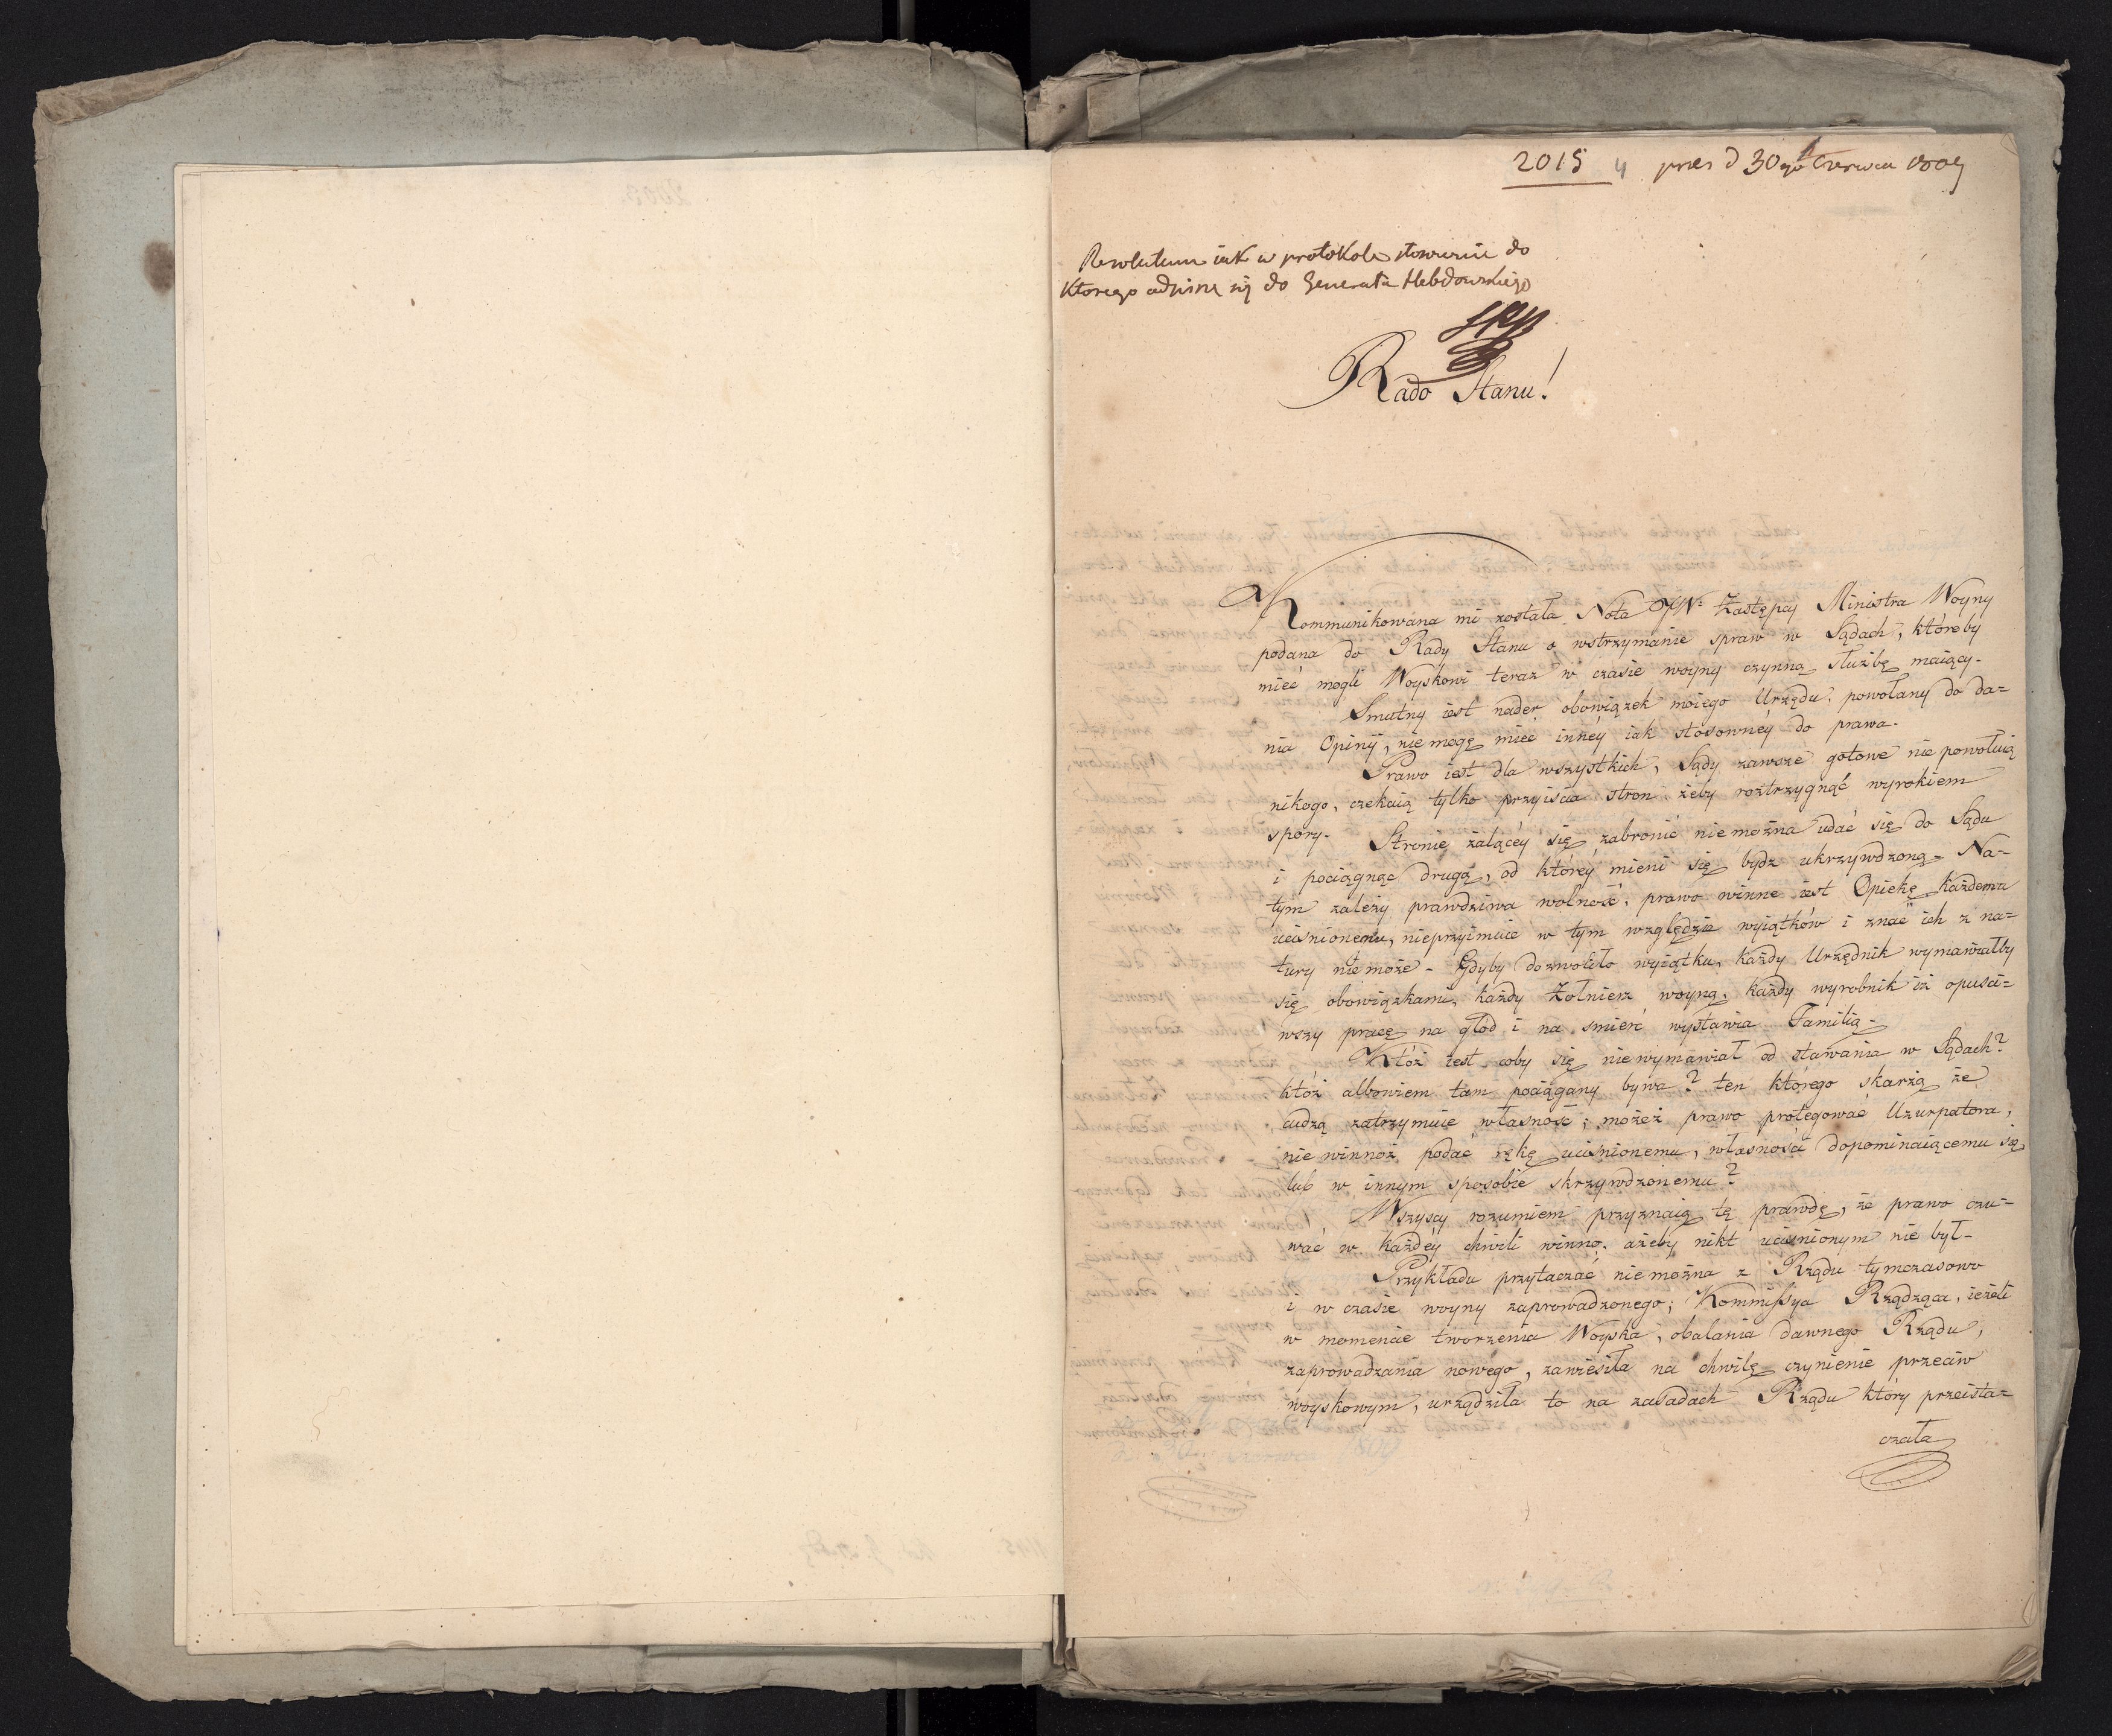 2015 4 pres d 30go Czerwca 1809
Resolutum iak w protokole stosownie do
ktorego odpisze się do Generała Hebdowskiego
Rado Stanu!
Kommunikowana mi została Nota JW: Zastępcy Ministra Woyny
podana do Rady Stanu o wstrzymanie spraw w Sądach, któreby
mieć mogli Woyskowi teraz w czasie woyny czynną służbę maiący.
Smutny iest nader obowiązek moiego Urzędu; powołany do da=
nia Opinij, nie mogę mieć inney iak stosowney do prawa.
Prawo iest dla wszystkich, Sądy zawsze gotowe nie powołuią
nikogo, czekaią tylko przyiścia stron żeby roztrzygnąć wyrokiem
spory. Stronie żalącey się zabronić nie można udać się do Sądu
i pociągnąć drugą, od którey mieni się bydź ukrzywdzoną. Na=
tym zależy prawdziwa wolność, prawo winne iest Opiekę każdemu
uciśnionemu, nieprzyimuie w tym względzie wyiątków i znać ich z na=
tury nie może. Gdyby dozwoliło wyiątku, każdy Urzędnik wymawiałby
się obowiązkami, każdy Żołnierz woyną, każdy wyrobnik iż opuści=
wszy pracę na głód i na śmierć wystawia Familią.
Któż iest coby się niewymawiał od stawania w Sądach?
któż albowiem tam pociągany bywa? ten którego skarżą że
cudzą zatrzymuie własność; możeż prawo protegować Uzurpatora,
nie winnoż podać rękę uciśnionemu, własności dopominaiącemu się
lub w innym sposobie skrzywdzonemu?
Wszyscy rozumiem przyznaią tę prawdę, że prawo czu=
wać w każdey chwili winno, ażeby nikt uciśnionym nie był.
Przykładu przytaczać nie można z Rządu tymczasowo
i w czasie woyny zaprowadzonego; Kommissya Rządząca, ieżeli
w momencie tworzenia Woyska, obalania dawnego Rządu,
zaprowadzania nowego, zawiesiła na chwilę czynienie przeciw
woyskowym, urządziła to na zasadach Rządu który przeista=
czała